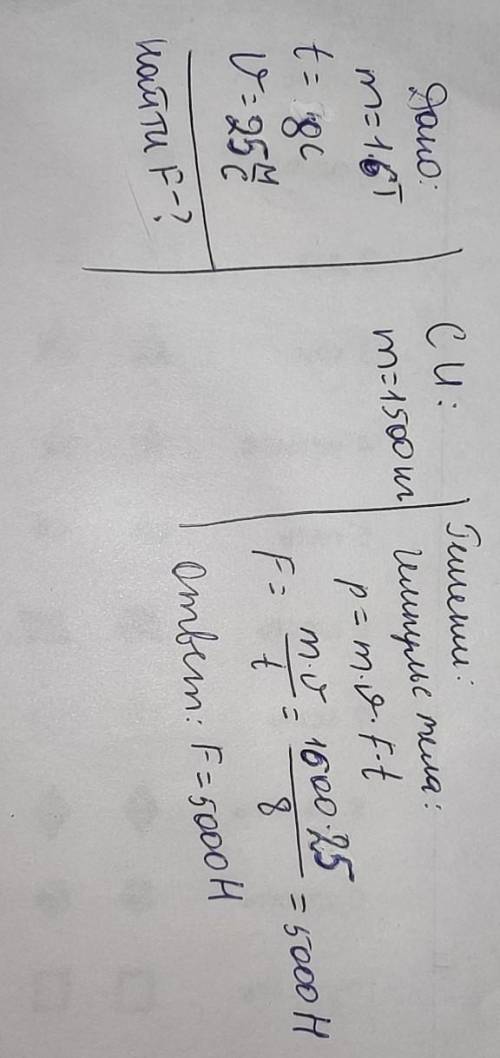 Дано:
m=1.6т
t= 8с
υ=25 м/с
найти F-?
СИ:
m=1500 кг
Решение:
импульс тела:
p=m·υ·F·t
F= m·υ/t = 1600·25/8 = 5000 Н
Ответ: F=5000Н